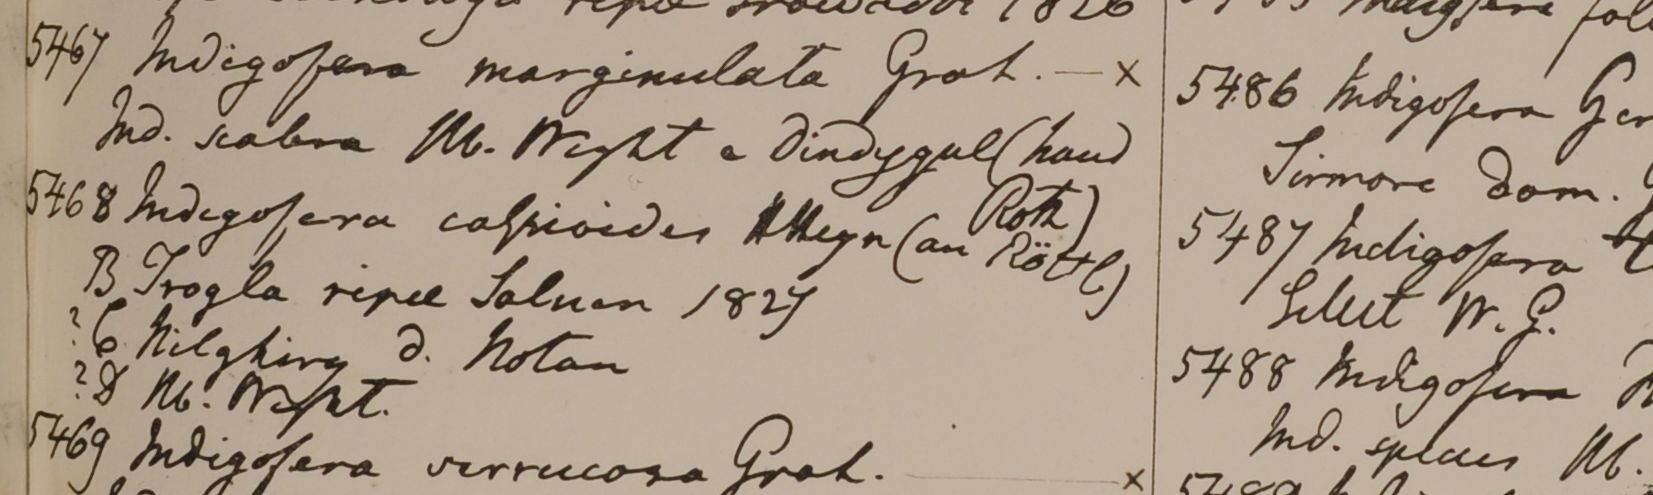 ripæ 1826
5467 Indigofera marginulata Grah. — x
Ind. scabra M. Wight e Dindygul (haud
Roth)
5468 Indigofera caspioides Heyn (an Röttl)
B Trogla ripæ Saluen 1827
? C Nilghiry d. Notan
? D M. Wight.
5469 Indigofera verrucosa Grah. — x
Indigofera fol
5486 Indigofera Ger
Sirmore Dom. G
5487 Indigofera
Silhet W. G.
5488 Indigofera
Ind. species M.
5489